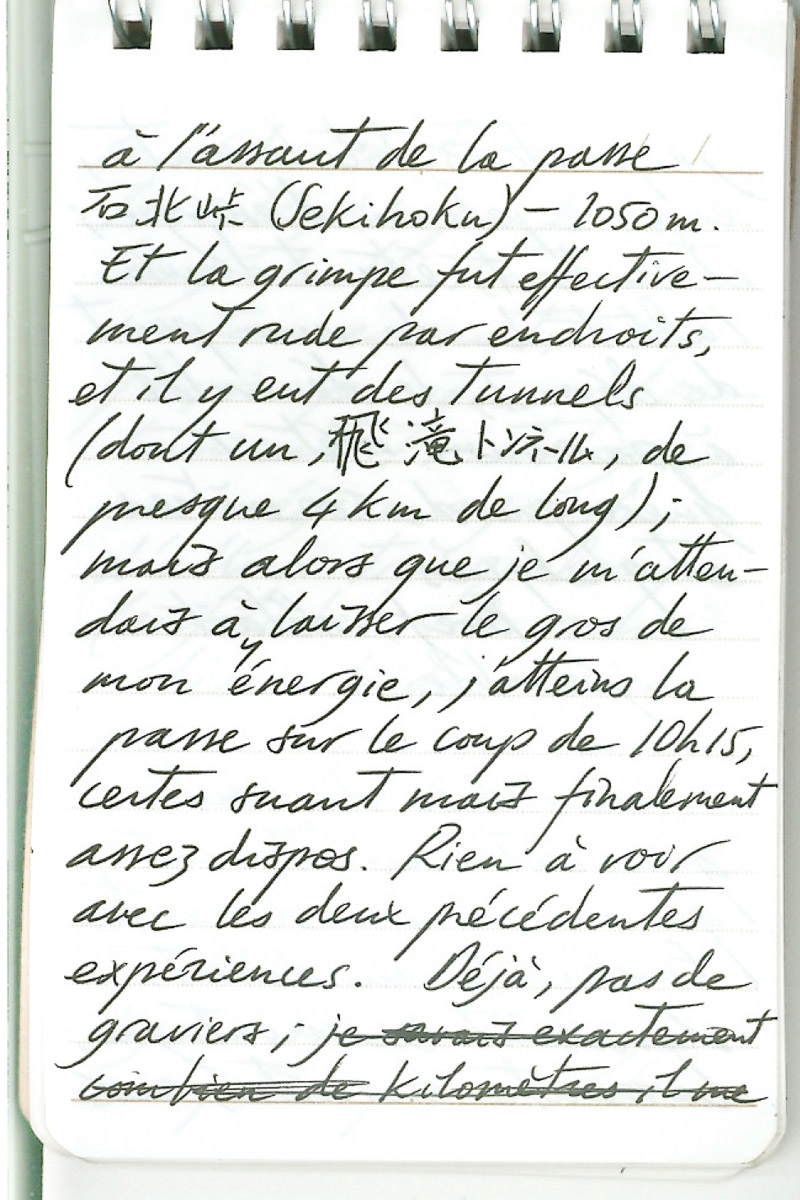 à l'assaut de la passe
石北峠 (Sekihoku) – 1050 m.
Et la grimpe fut effective-
ment rude par endroits,
et il y eut des tunnels
(dont un, 飛滝トンネール, de
presque 4 km de long) ;
mais alors que je m'atten-
dais à y laisser le gros de
mon énergie, j'atteins la
passe sur le coup de 10h15,
certes suant mais finalement
assez dispos. Rien à voir
avec les deux précédentes
expériences. Déjà, pas de
graviers ; je savais exactement
combien de kilomètres il me